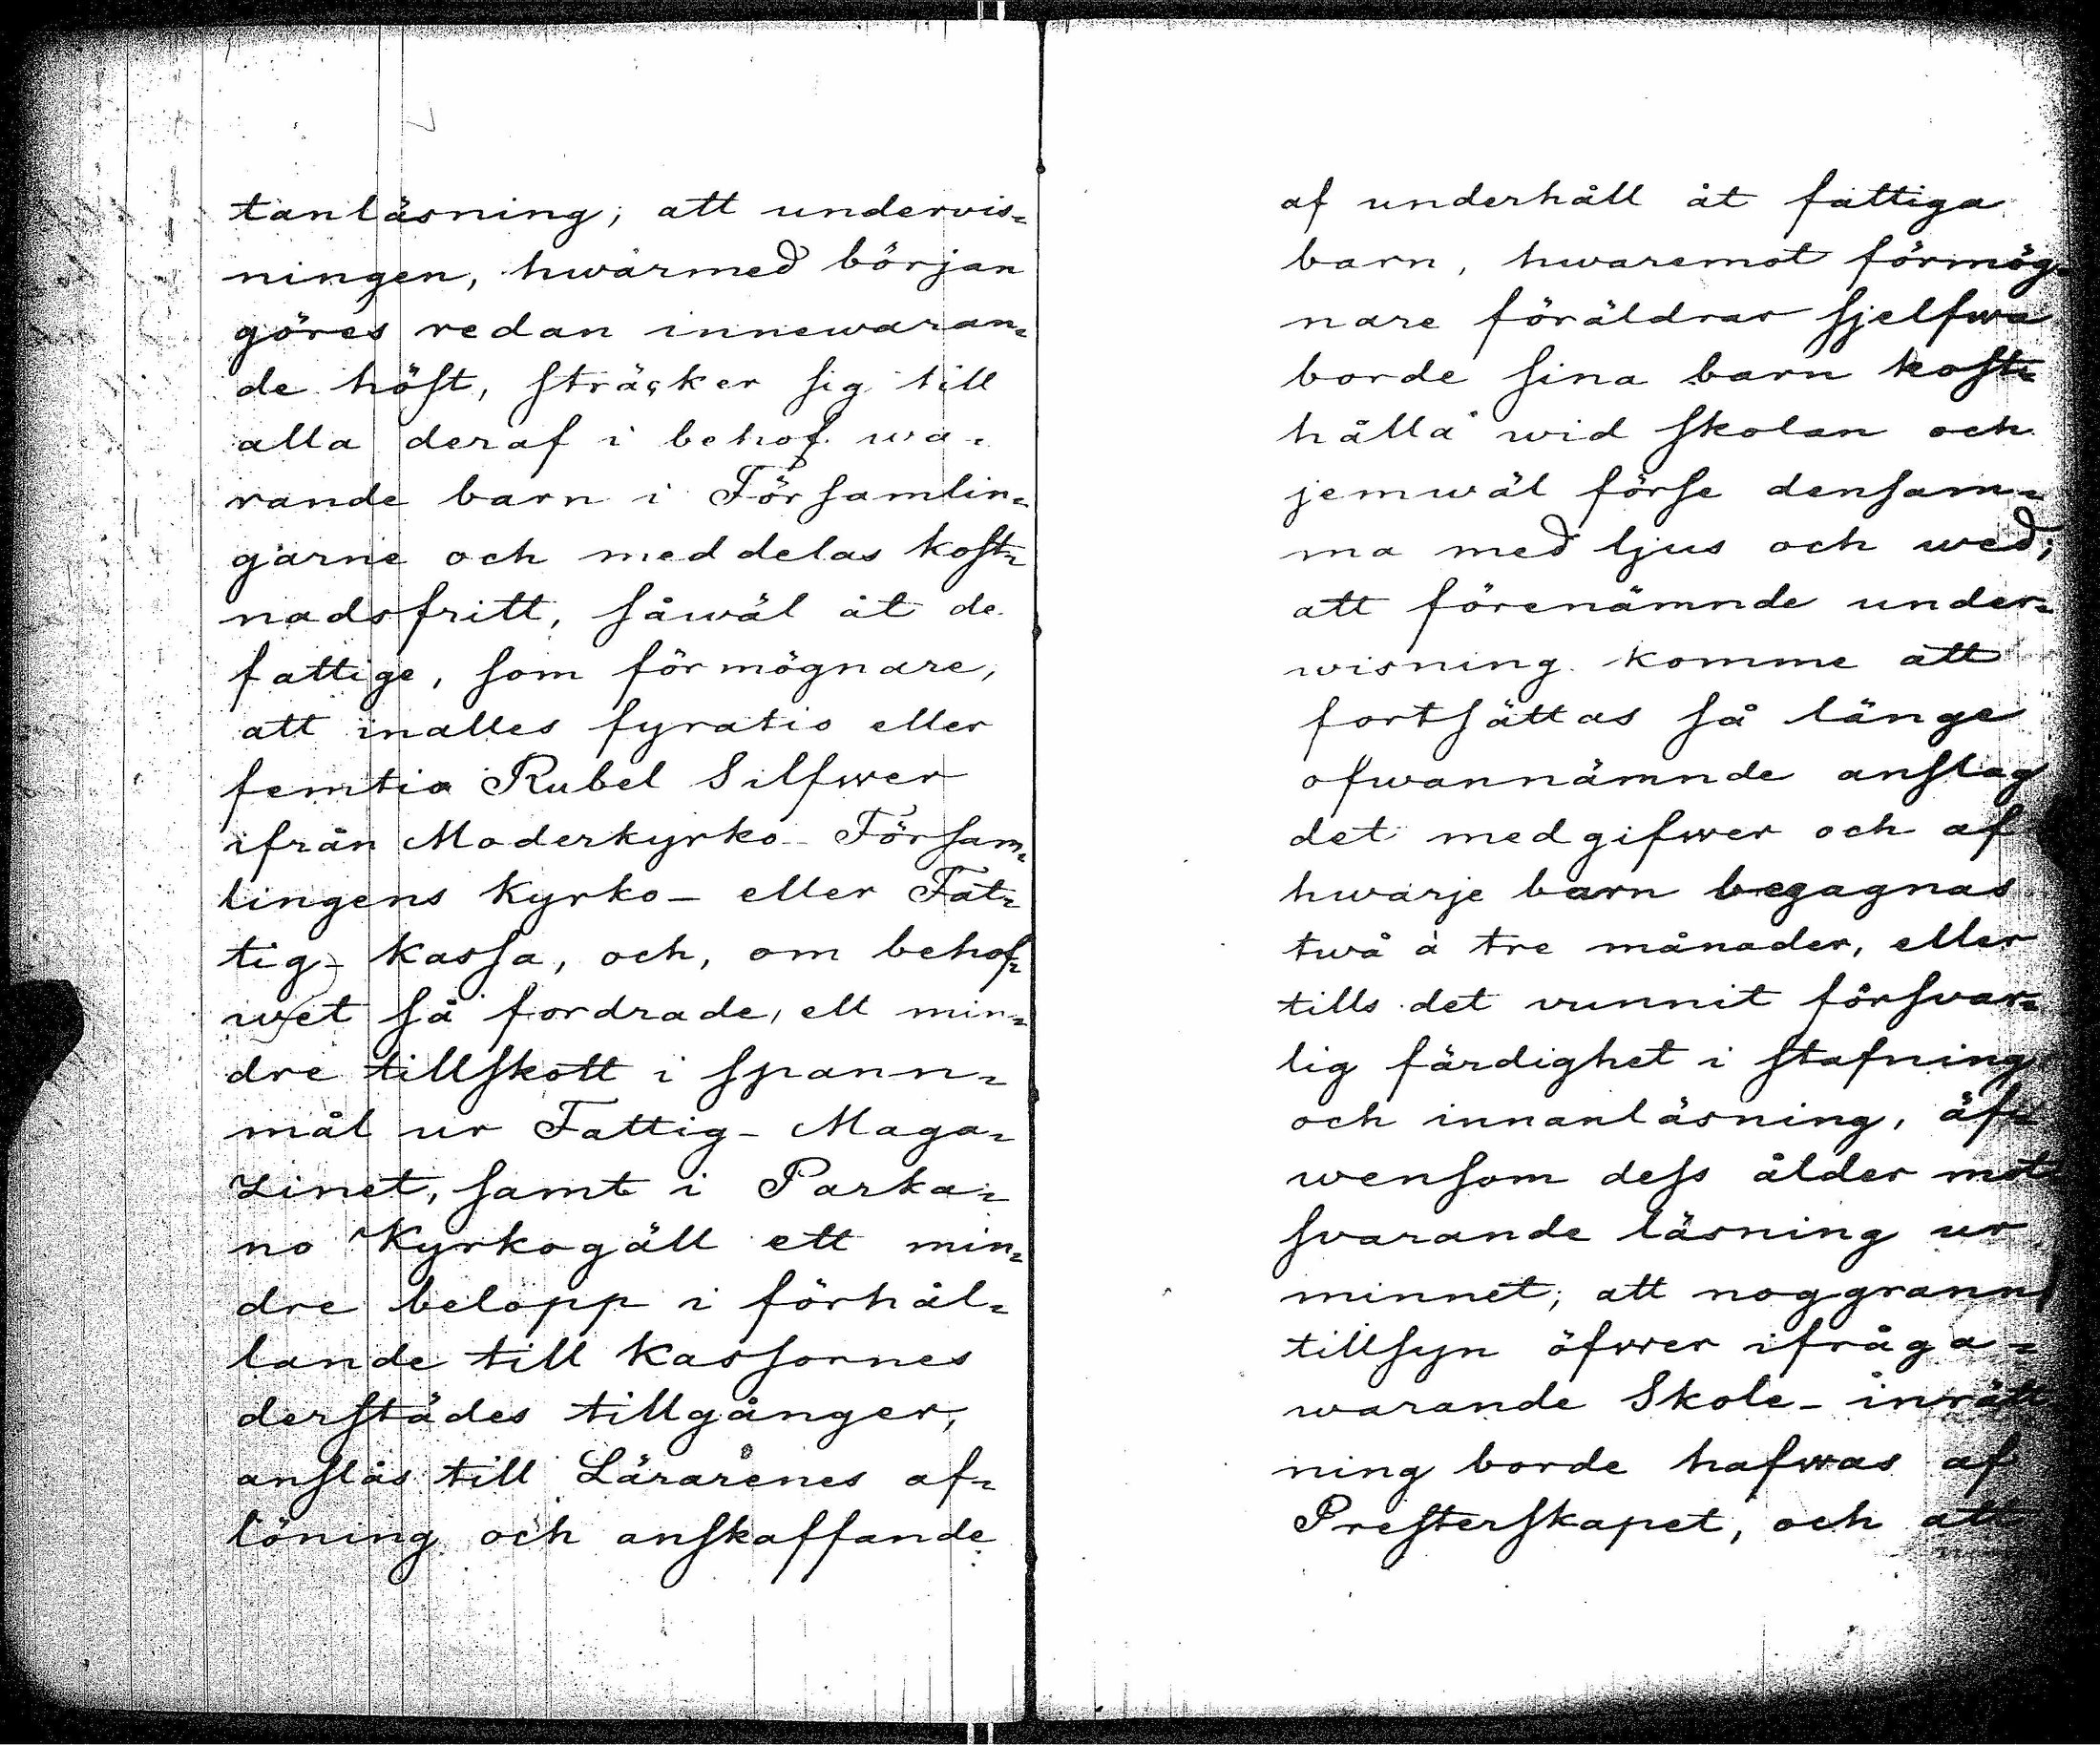 tanläsning; att undervis=
ningen, hwarmed början
göres redan innewaran=
de höst, sträcker sig till
alla deraf i behof wa=
rande barn i Församlin=
garne och meddelas kost=
nadsfritt, såwäl åt de
fattige, som förmögnare,
att inalles fyratio eller
femtio Rubel Silfwer
ifrån Moderkyrko-Försam=
lingens Kyrko- eller Fat=
tig-kassa, och, om behof=
wet så fordrade, ett min=
dre tillskott i spann=
mål ur Fattig-Maga=
zinet, samt i Parka=
no Kyrkogäll ett min=
dre belopp i förhål=
lande till kassornes
derstädes tillgånger,
anslås till Lärarenes af=
löning och anskaffande
af underhåll åt fattiga
barn, hwaremot förmög=
nare föräldrar sjelfwa
borde sina barn kost=
hålla wid skolan och
jemwäl förse densam=
ma med ljus och wed;
att förenämnde under=
wisning komme att
fortsättas så länge
ofwannämnde anslag
det medgifwer och af
hwarje barn begagnas
twå à tre månader, eller
tills det vunnit försvar=
lig färdighet i stafning
och innanläsning, äf=
wensom dess ålder mot=
svarande läsning ur
minnet; att noggrann
tillsyn öfwer ifråga=
warande Skole-inrätt
ning borde hafwas af
Presterskapet, och att